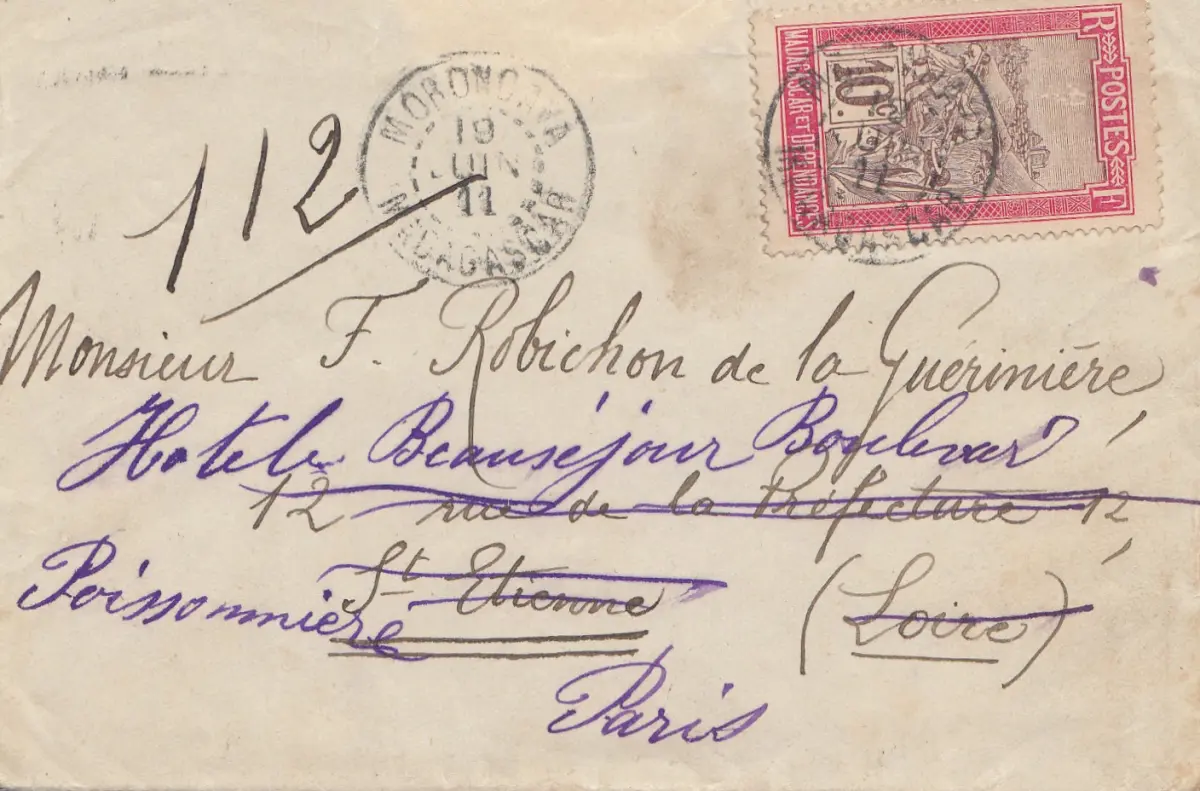 R POSTES F
MADAGASCAR ET DÉPENDANCES
10c.
MORONDAVA
19
JUIN
11
MADAGASCAR
11
112
Monsieur F. Robichon de la Guérinière,
Hotel Beauséjour Boulevard
12 rue de la Préfecture 12,
Poissonnière
St Etienne (Loire)
Paris